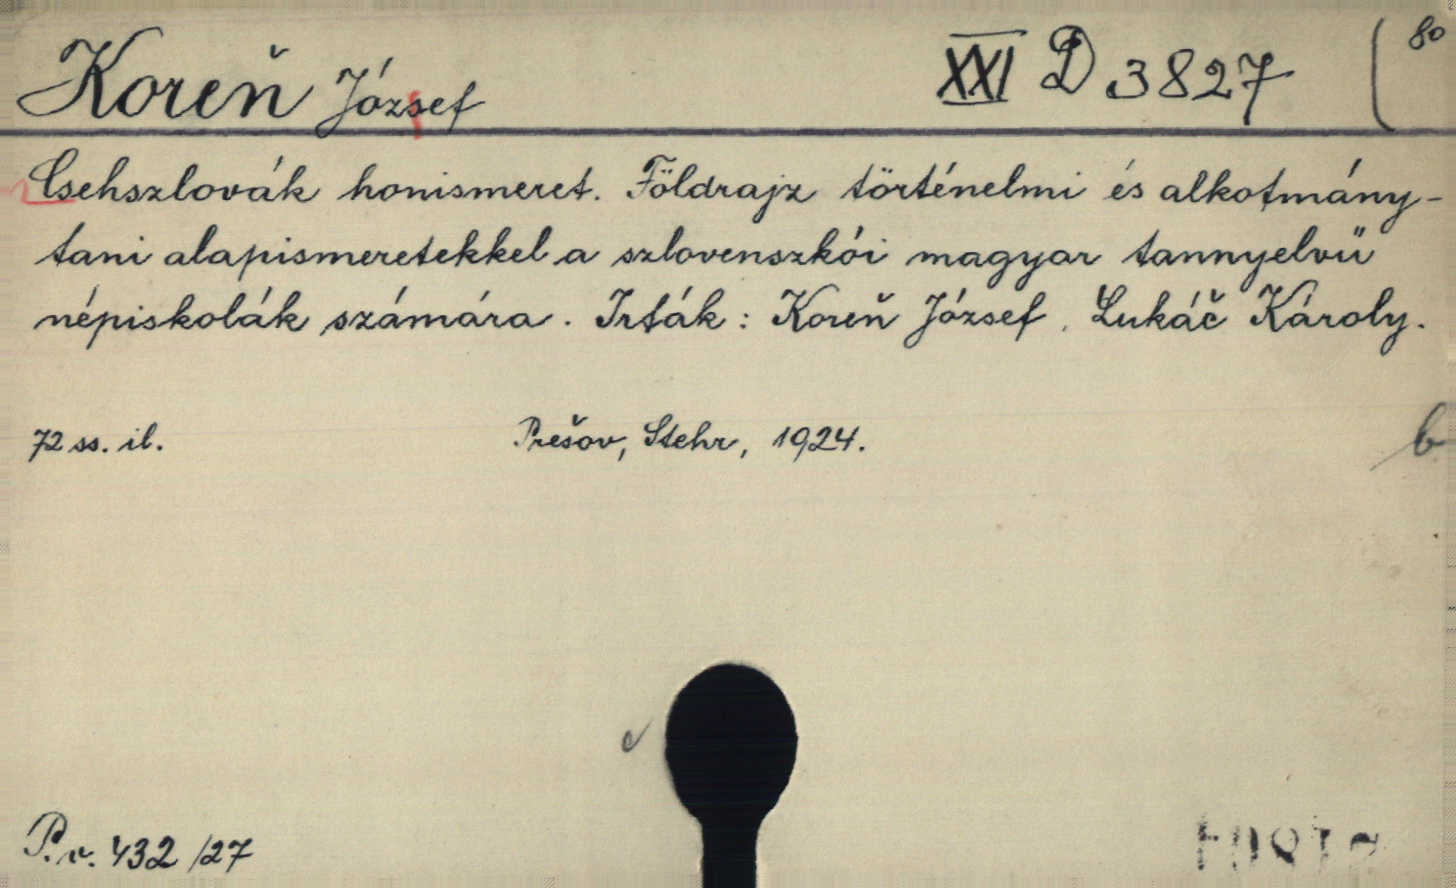 Koreň József XXI D 3827 (80
Csehszlovák honismeret. Földrajz történelmi és alkotmány-
tani alapismeretekkel a szlovenszkói magyar tannyelvű
népiskolák számára. Irták: Koreň József, Lukáč Károly.
72 ss. il. Prešov, Stehr, 1924. b
P.v. 432/27